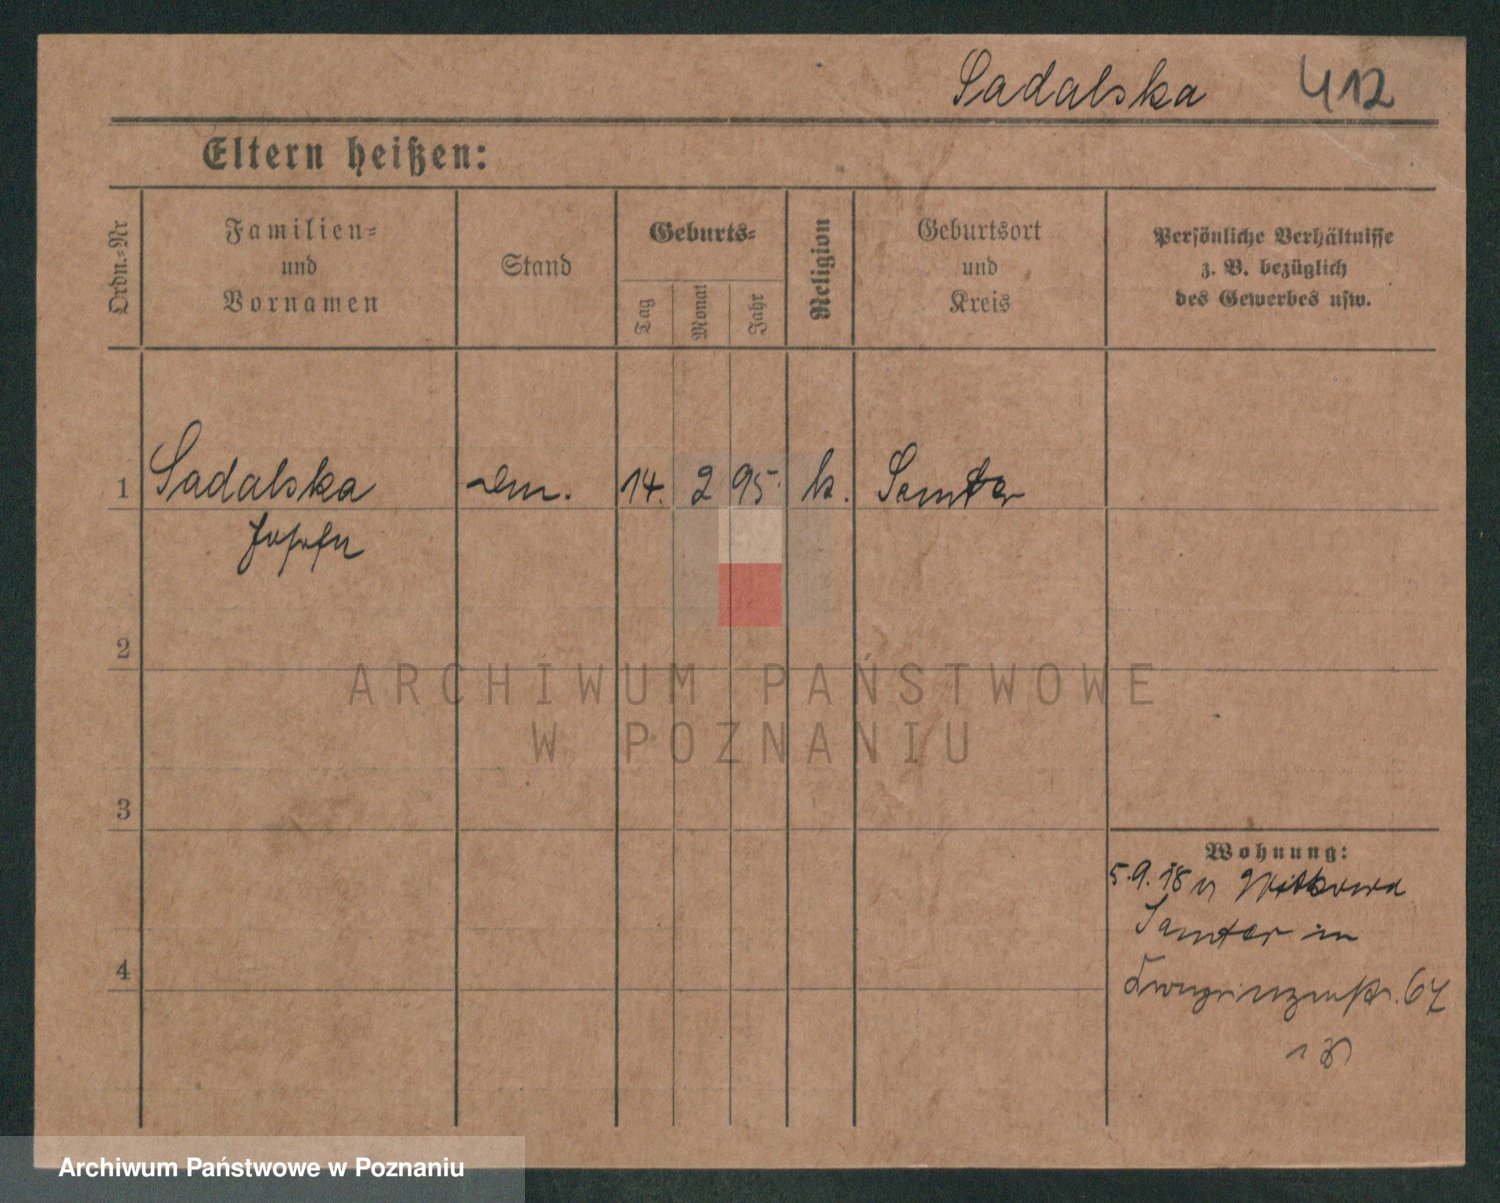 Sadalska 412
Eltern heißen:
Ordn.-Nr
Familien-
und
Vornamen
Stand
Geburts-
Tag
Monat
Jahr
Religion
Geburtsort
und
Kreis
Persönliche Verhältnisse
z. B. bezüglich
des Gewerbes usw.
1 Sadalska 14. 2 95. k. Samter
Josefa
2
3
4
Wohnung:
5.9.18 Witkowo
Samter in
Kronprinzenstr. 67
ARCHIWUM PAŃSTWOWE
W POZNANIU
Archiwum Państwowe w Poznaniu